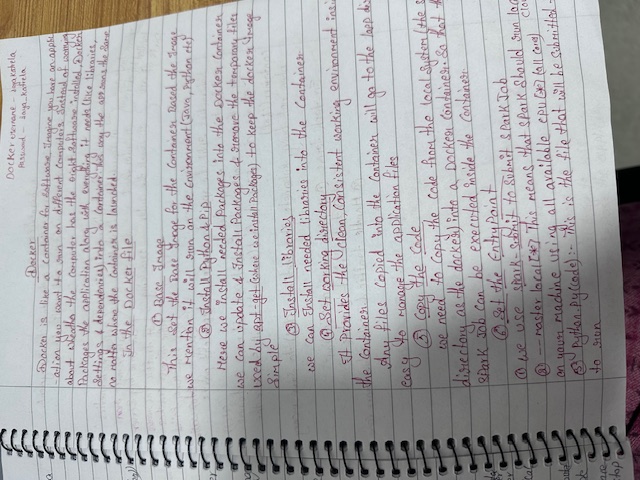 Docker username - Jayakafela
Password - Jaya_Kafiela
Docker
Docker is like a Container for Software. Imagine you have an applic
-ation you want to run on different computers Instead of worrying
about wheatha the computer has the right software installed, Docker
Packages the application along with everything it needs (like libraries,
Settings & dependencies) into a Container this way the app runs the Same
no matter where the Container is launched.
In the Docker file
① Base Image
This Set the Base Image for the Container Based the Image
we mention it will run on the environment (Java, Python etc)
② Install Python & Pip
Here we install needed Packages into the Docker Container
we can update & Install Packages & remove the temporary files
used by apt-get (where we install Packages) to keep the docker image
Simple
③ Install libraries
we can Install needed libraries into the Container
④ Set working directory
It Provides the clean, Consistent working environment insi
the Container
Any files Copied into the Container will go to the /app di
easy to manage the application files
⑤ Copy the Code
we need to Copy the code from the local System (the s
directory as the docker) into a Docker Container. So that th
Spark Job can be executed inside the Container
⑥ Set the Entry Point
① we use Spark-Submit to Submit Spark Job
② --master local[*] This means that Spark Should run loc
on your machine using all available cpu [*] (all cores) clou
③ Python.Py (code) :- This is the file that will be Submitted
to run